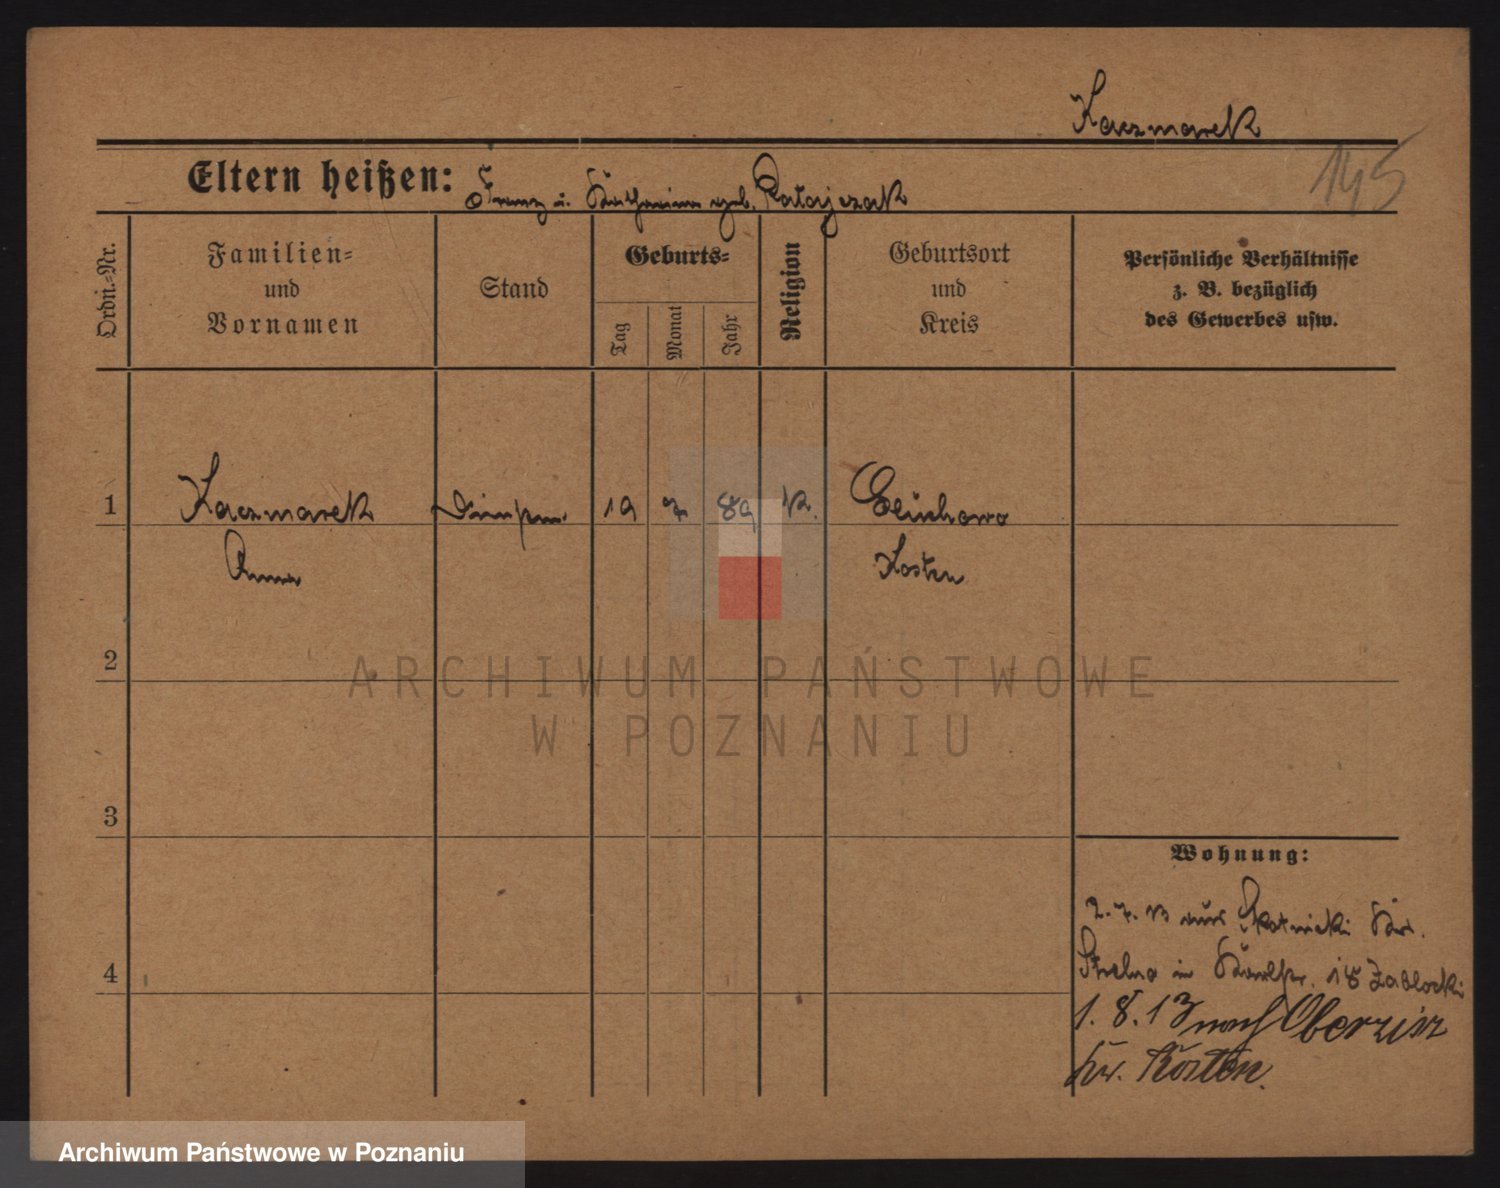 Kaczmarek
145
Eltern heißen: Franz u. Katharina geb. Ratajczak
Ordn.-Nr.
Familien-
und
Vornamen
Stand
Geburts-
Tag
Monat
Jahr
Religion
Geburtsort
und
Kreis
Persönliche Verhältnisse
z. B. bezüglich
des Gewerbes usw.
1 Kaczmarek 19 7 89 K.
Anna Kosten
2
ARCHIWUM PAŃSTWOWE
W POZNANIU
3
Wohnung:
2. 7. 13 aus Skotniki Kr.
4
Strelno in 18 Zablocki
1. 8. 13 nach Oberzirz
Kr. Kosten.
Archiwum Państwowe w Poznaniu